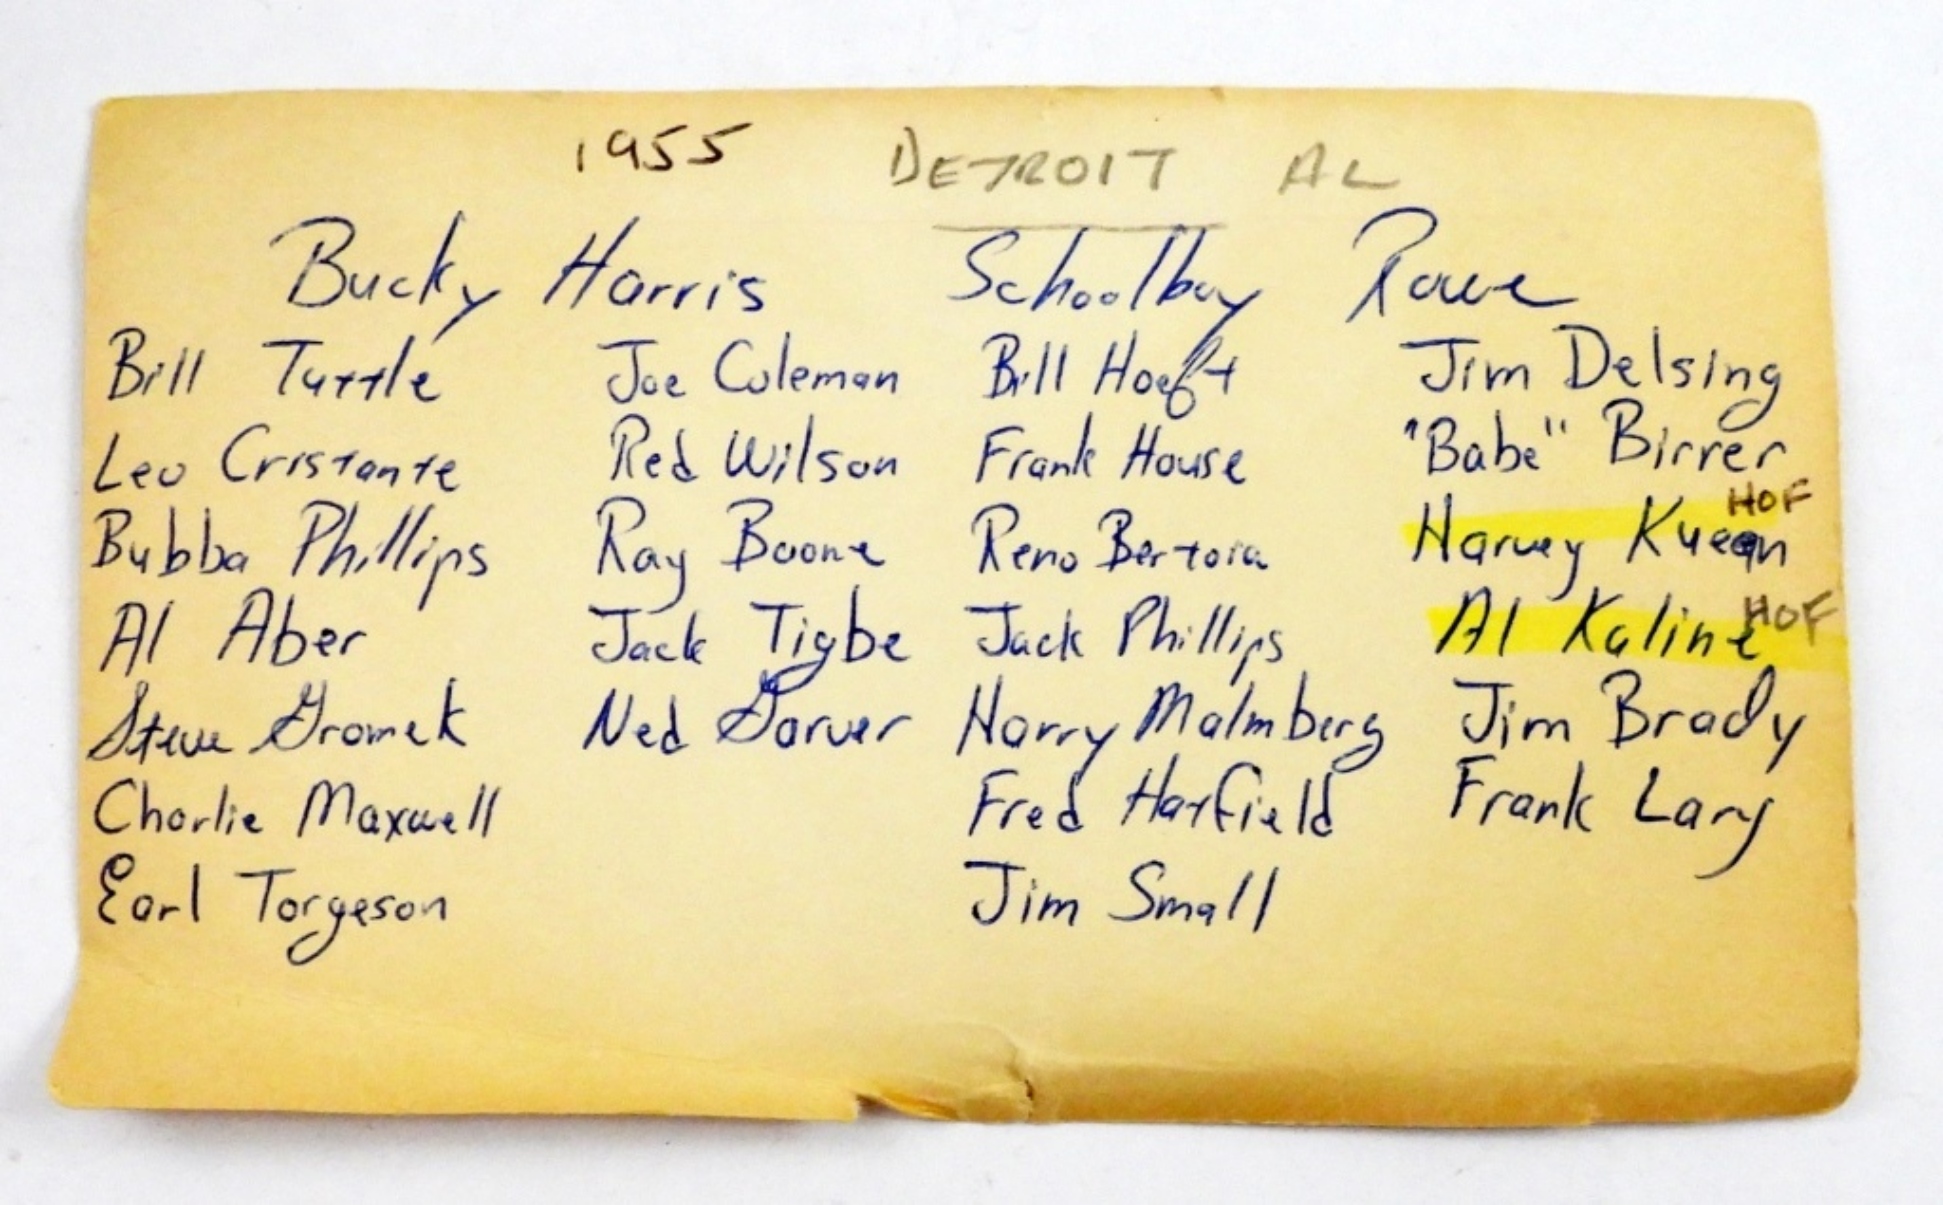 1955 DETROIT AL
Bucky Harris Schoolboy Rowe
Bill Tuttle Joe Coleman Bill Hoeft Jim Delsing
Leo Cristante Red Wilson Frank House "Babe" Birrer
HOF
Bubba Phillips Ray Boone Reno Bertoia Harvey Kueen
Al Aber Jack Tigbe Jack Phillips Al Kaline HOF
Steve Gromek Ned Garver Harry Malmberg Jim Brady
Charlie Maxwell Fred Hatfield Frank Lary
Earl Torgeson Jim Small